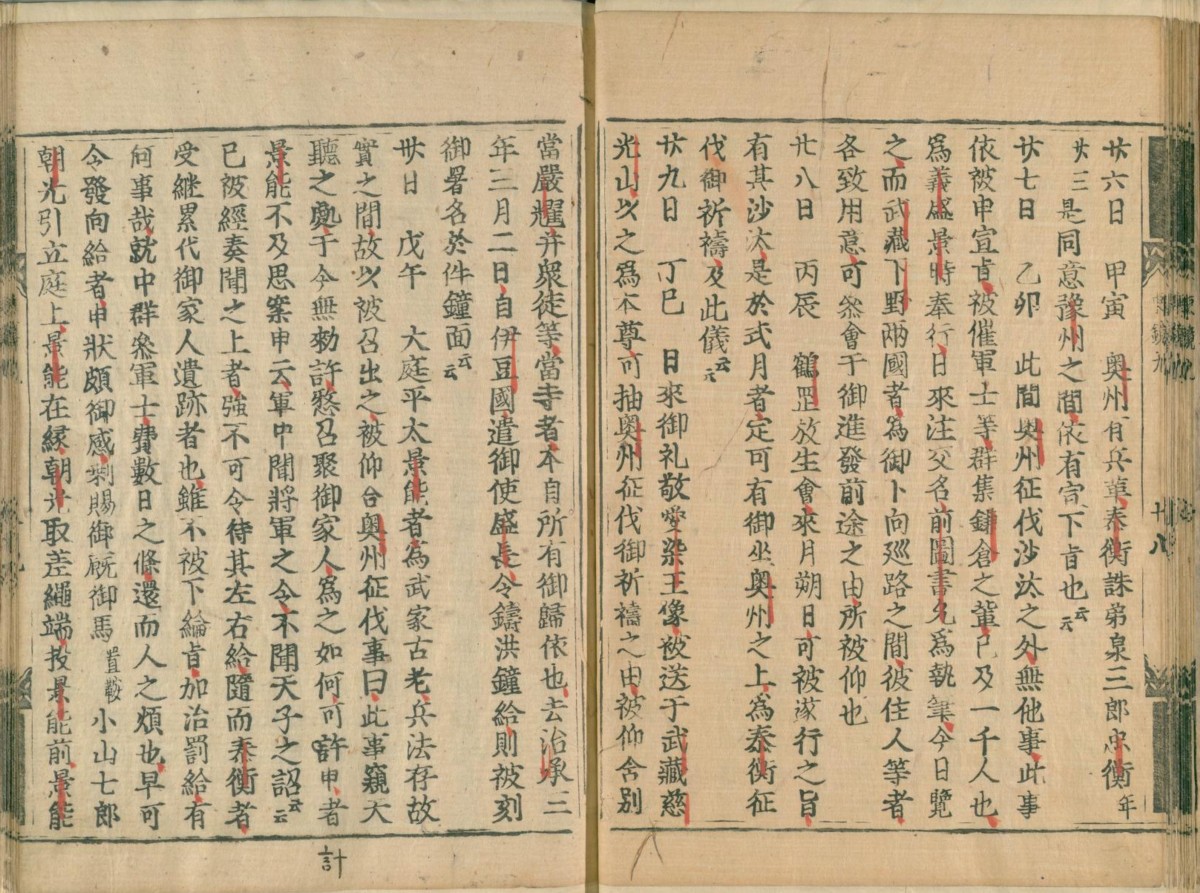 廿六日　甲寅　奥州有兵革泰衡誅弟泉三郎忠衡年
廿三是同意豫州之間依有宣下旨也云云
廿七日　乙卯　此間奥州征伐沙汰之外無他事此事
依被申宣旨被催軍士等群集鎌倉之輩已及一千人也
爲義盛景時奉行日來注交名前圖書允爲執筆今日覽
之而武藏下野兩國者爲御卜向巡路之間彼住人等者
各致用意可參會于御進發前途之由所被仰也
廿八日　丙辰　鶴罡放生會來月朔日可被遂行之旨
有其沙汰是於式月者定可有御坐奥州之上爲泰衡征
伐御祈禱及此儀云云
廿九日　丁巳　日來御礼敬愛染王像被送于武藏慈
光山以之爲本尊可抽奥州征伐御祈禱之由被仰含別
當嚴耀并衆徒等當寺者本自所有御歸依也去治承三
年三月二日自伊豆國遣御使盛長令鑄洪鐘給則被刻
御署名於件鐘面云云
卅日　戊午　大庭平太景能者爲武家古老兵法存故
實之間故以被召出之被仰合奥州征伐事曰此事窺天
聽之處于今無勅許憗召聚御家人爲之如何可許申者
景能不及思案申云軍中聞將軍之令不聞天子之詔云云
已被經奏聞之上者強不可令待其左右給隨而泰衡者
受継累代御家人遺跡者也雖不被下綸旨加治罰給有
何事哉就中群參軍士費數日之條還而人之煩也早可
令發向給者申狀頗御感剰賜御厩御馬置鞍小山七郎
朝光引立庭上景能在縁朝光取差繩端投景能前景能
計
十八